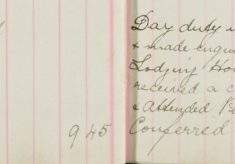 9 45
Day duty
& made enqui
Lodging Ho
received a c
& attended P
Conferred